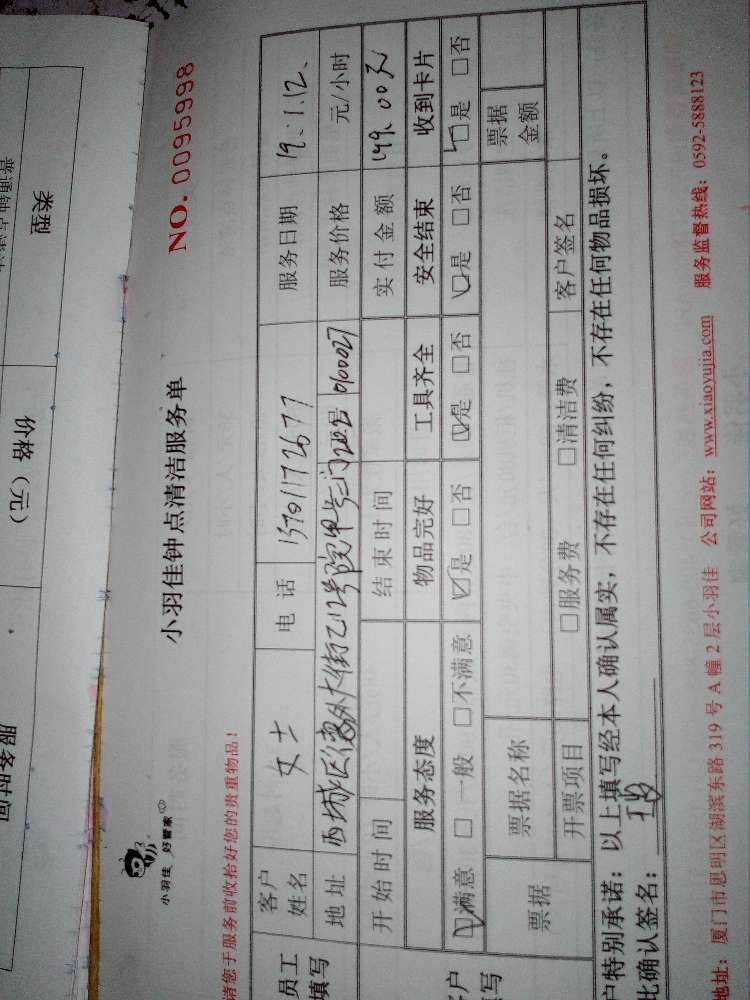 类型
价格（元）
服务时间
NO. 0095998
小羽佳钟点清洁服务单
小羽佳 好管家
请您于服务前收拾好您的贵重物品！
员工
填写
客户
姓名
女士
电话
服务日期
19.1.12.
地址
西城区德外大街乙12号院甲号三门
0100027
服务价格
元/小时
开始时间
结束时间
实付金额
149.00元
服务态度
物品完好
工具齐全
安全结束
收到卡片
☑满意 □一般 □不满意
☑是 □否
☑是 □否
☑是 □否
☑是 □否
票据
票据名称
票据
金额
开票项目
□服务费 □清洁费
客户签名
户特别承诺：以上填写经本人确认属实，不存在任何纠纷，不存在任何物品损坏。
比确认签名：
地址：厦门市思明区湖滨东路 319 号 A 幢 2 层小羽佳 公司网站：www.xiaoyujia.com 服务监督热线：0592-5888123